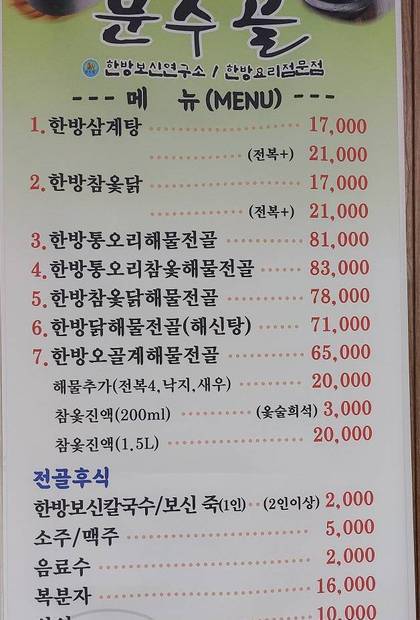 분수골
한방보신연구소 / 한방요리전문점
--- 메 뉴(MENU) ---
1. 한방삼계탕 17,000
(전복+) 21,000
2. 한방참옻닭 17,000
(전복+) 21,000
3. 한방통오리해물전골 81,000
4. 한방통오리참옻해물전골 83,000
5. 한방참옻닭해물전골 78,000
6. 한방닭해물전골(해신탕) 71,000
7. 한방오골계해물전골 65,000
해물추가(전복4,낙지,새우) 20,000
참옻진액(200ml) (옻술희석) 3,000
참옻진액(1,5L) 20,000
전골후식
한방보신칼국수/보신 죽(1인) (2인이상) 2,000
소주/맥주 5,000
음료수 2,000
복분자 16,000
10,000